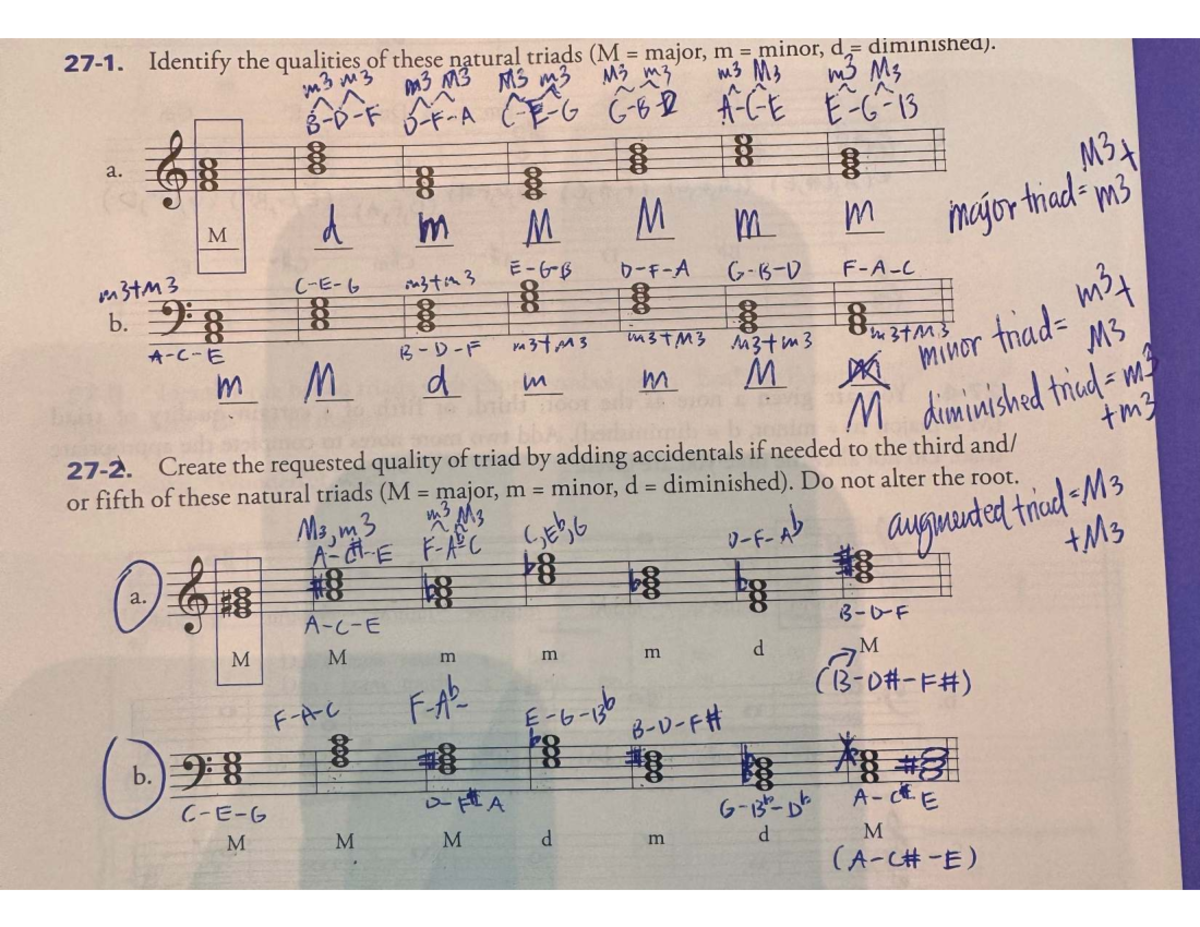 27-1. Identify the qualities of these natural triads (M = major, m = minor, d = diminished).
m3 m3 m3 M3 M3 m3 M3 m3 m3 M3 m3 M3
B-D-F D-F-A C-E-G G-B-D A-C-E E-G-B
a.
M d m M M m m
M3+
major triad= m3
m3+m3 C-E-G m3+m3 E-G-B D-F-A G-B-D F-A-C
b.
A-C-E B-D-F m3+M3 m3+M3 M3+m3 m3+M3
m M d m m M M
m3+
minor triad= M3
diminished triad= m3
+m3
27-2. Create the requested quality of triad by adding accidentals if needed to the third and/
or fifth of these natural triads (M = major, m = minor, d = diminished). Do not alter the root.
augmented triad=M3
+M3
M3, m3 m3 M3
A-C#-E F-Ab-C C,Eb,G D-F-Ab
a.
A-C-E B-D-F
M M m m m d M
(B-D#-F#)
F-A-C F-Ab- E-G-Bb B-D-F#
b.
C-E-G D-F#A G-Bb-Db A-C# E
M M M d m d M
(A-C#-E)